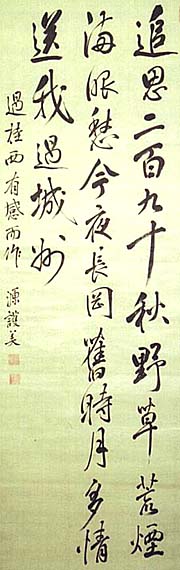 追思二百九十秋野草荒煙
滿眼愁今夜長岡舊時月多情
送我過城州
過桂西有感而作 源護美